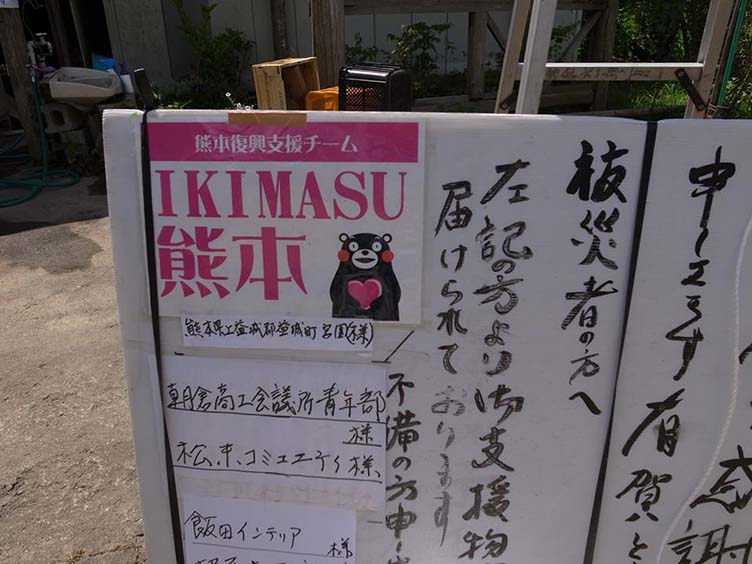 熊本復興支援チーム
IKIMASU
熊本
熊本県上益城郡益城町 宮園(様)
朝倉商工会議所青年部
様
松末コミュニティ様
飯田インテリア
様
被災者の方へ
左記の方より御支援物
届けられて
おります
不備の方申し
申し上げます
感謝